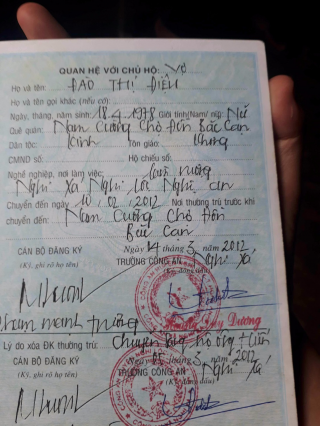 QUAN HỆ VỚI CHỦ HỘ: Vợ
Họ và tên: ĐÀO THỊ ĐIỆU
Họ và tên gọi khác (nếu có):
Ngày, tháng, năm sinh: 18.4.1978 Giới tính(Nam/ nữ): Nữ
Quê quán: Nam Cường Chợ Đồn Bắc Cạn
Dân tộc: Kinh Tôn giáo: không
CMND số: Hộ chiếu số:
Nghề nghiệp, nơi làm việc: Làm ruộng
Nghi Xá Nghi Lộc Nghệ an
Chuyển đến ngày 10.02.2012 Nơi thường trú trước khi
chuyển đến: Nam Cường Chợ Đồn
Bắc Cạn
Ngày 14 tháng 3 năm 2012
CÁN BỘ ĐĂNG KÝ TRƯỞNG CÔNG AN Nghi Xá
(Ký, ghi rõ họ tên)
Phạm mạnh trường Dương
Lý do xóa ĐK thường trú: Chuyển
tháng 3 năm 2012
CÁN BỘ ĐĂNG KÝ TRƯỞNG CÔNG AN Nghi Xá
(Ký, ghi rõ họ tên)